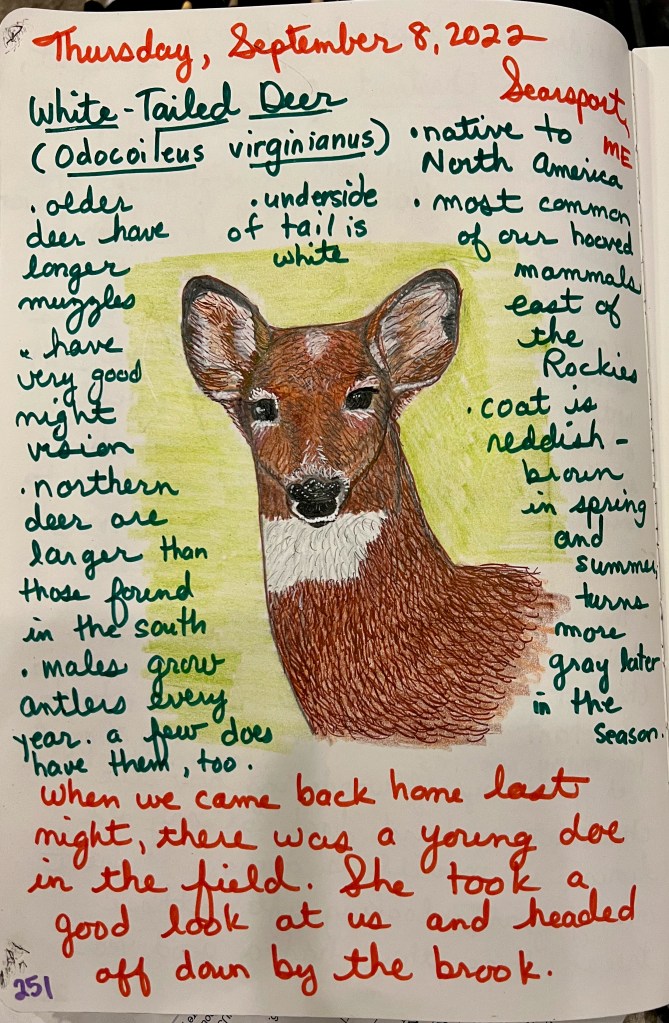 Thursday, September 8, 2022
Searsport, ME
White-Tailed Deer
(Odocoileus virginianus)
• older
deer have
longer
muzzles
• have
very good
night
vision
• northern
deer are
larger than
those found
in the south
• males grow
antlers every
year. a few does
have them, too.
• underside
of tail is
white
• native to
North America
• most common
of our hooved
mammals
east of
the
Rockies
• coat is
reddish-
brown
in spring
and
summer,
turns
more
gray later
in the
season.
When we came back home last
night, there was a young doe
in the field. She took a
good look at us and headed
off down by the brook.
251